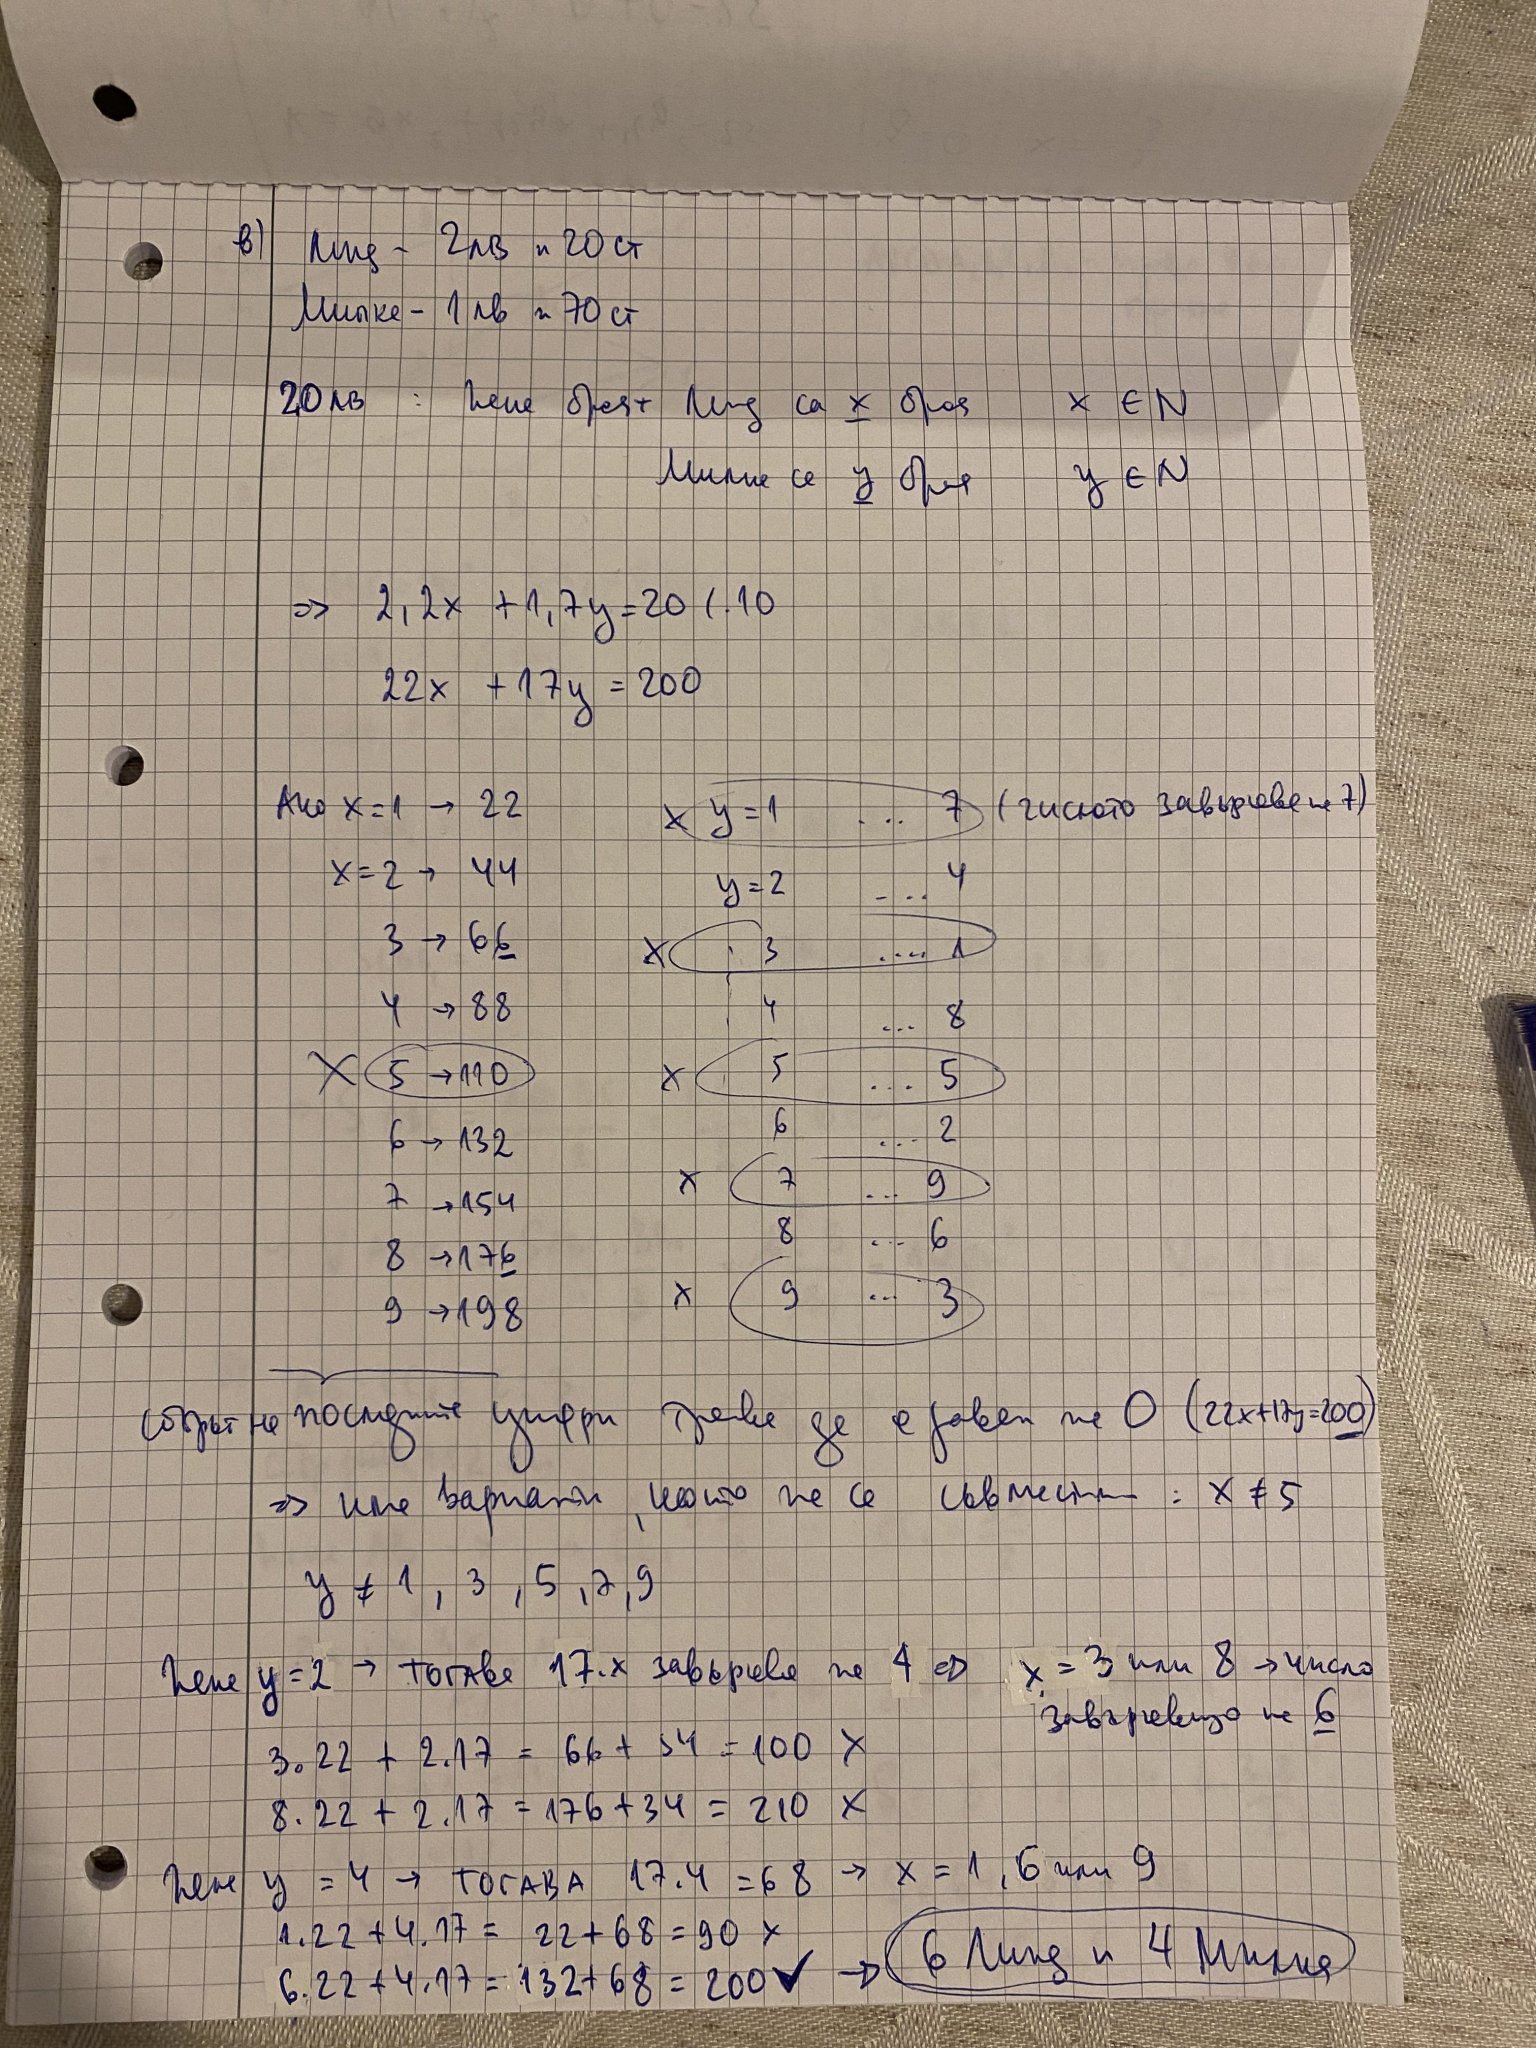 в) Линд - 2лв и 20ст
Милка - 1лв и 70ст
20лв : Нека броят Линд са x броя x ∈ N
Милка са y броя y ∈ N
=> 2,2x + 1,7y = 20 /.10
22x + 17y = 200
Ако x=1 → 22 x y=1 ... 7 (числото завършва на 7)
x=2 → 44 y=2 ... 4
3 → 66 x 3 .... 1
4 → 88 4 ... 8
X 5 → 110 x 5 ... 5
6 → 132 6 ... 2
7 → 154 x 7 ... 9
8 → 176 8 ... 6
9 → 198 x 9 ... 3
Сборът на последните цифри трябва да е равен на 0 (22x+17y=200)
=> има варианти, които не са съвместими : x ≠ 5
y ≠ 1, 3, 5, 7, 9
Нека y=2 → тогава 17.x завършва на 4 => x = 3 или 8 → число
завършващо на 6
3.22 + 2.17 = 66 + 34 = 100 X
8.22 + 2.17 = 176 + 34 = 210 X
Нека y = 4 → ТОГАВА 17.4 = 68 → x = 1, 6 или 9
1.22 + 4.17 = 22 + 68 = 90 x
6.22 + 4.17 = 132 + 68 = 200 ✓ → 6 Линд и 4 Милка